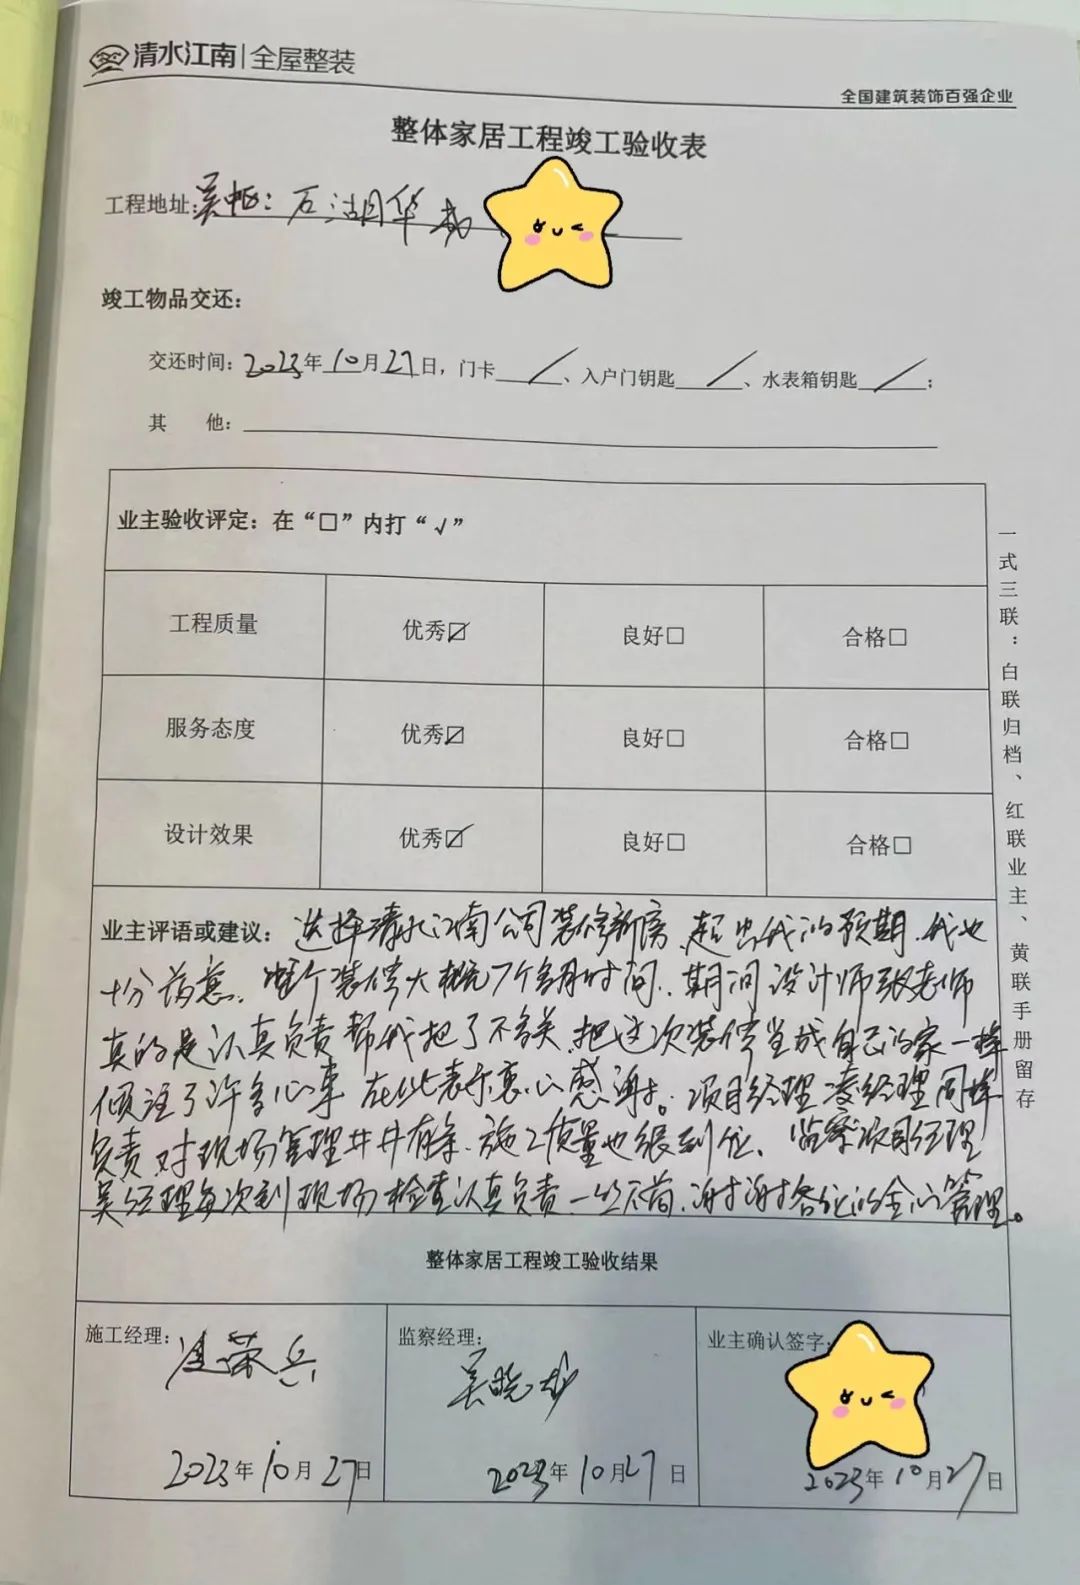 清水江南|全屋整装
全国建筑装饰百强企业
整体家居工程竣工验收表
工程地址:吴中区:石湖月华
竣工物品交还:
交还时间:2023年10月27日,门卡/、入户门钥匙/、水表箱钥匙/;
其 他:
业主验收评定:在“□”内打“√”
工程质量 优秀☑ 良好□ 合格□
服务态度 优秀☑ 良好□ 合格□
设计效果 优秀☑ 良好□ 合格□
业主评语或建议:选择清水江南公司装修新房,超出我的预期,我也
十分满意。整个装修大概7个多月时间,期间设计师张老师
真的是认真负责帮我把了不少关,把这次装修当成自己的家一样
倾注了许多心事,在此表示衷心感谢。项目经理凌经理同样
负责,对现场管理井井有条,施工质量也很到位。监察项目经理
吴经理每次到现场检查认真负责一丝不苟,谢谢各位的全心管理。
整体家居工程竣工验收结果
施工经理:凌荣兵
监察经理:吴晓
业主确认签字:
2023年10月27日
2023年10月27日
2023年10月27日
一式三联:白联归档、红联业主、黄联手册留存